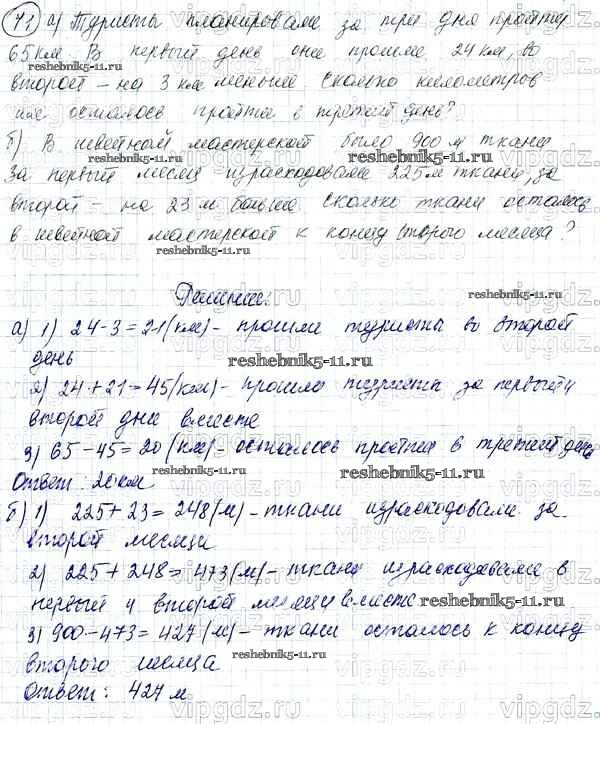 71 а) Туристы планировали за три дня пройти
65 км. В первый день они прошли 24 км, во
второй – на 3 км меньше. Сколько километров
им осталось пройти в третий день?
б) В швейной мастерской было 900 м ткани
reshebnik5-11.ru reshebnik5-11.ru
За первый месяц израсходовали 225 м ткани, за
второй – на 23 м больше. Сколько ткани осталось
в швейной мастерской к концу второго месяца?
reshebnik5-11.ru
Решение:
а) 1) 24-3=21(км) - прошли туристы во второй
день
reshebnik5-11.ru
2) 24+21=45(км) - прошли туристы за первый и
второй дни вместе
3) 65-45=20(км) - осталось пройти в третий день
reshebnik5-11.ru
Ответ: 20 км
б) 1) 225+23=248(м) - ткани израсходовали за
второй месяц
2) 225+248=473(м) - ткани израсходовали в
первый и второй месяцы вместе
reshebnik5-11.ru
3) 900-473=427(м) - ткани осталось к концу
второго месяца
reshebnik5-11.ru
Ответ: 427 м
vipgdz.ru vipgdz.ru